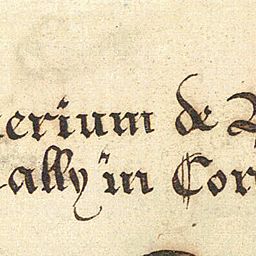 erium de
ally in Cor